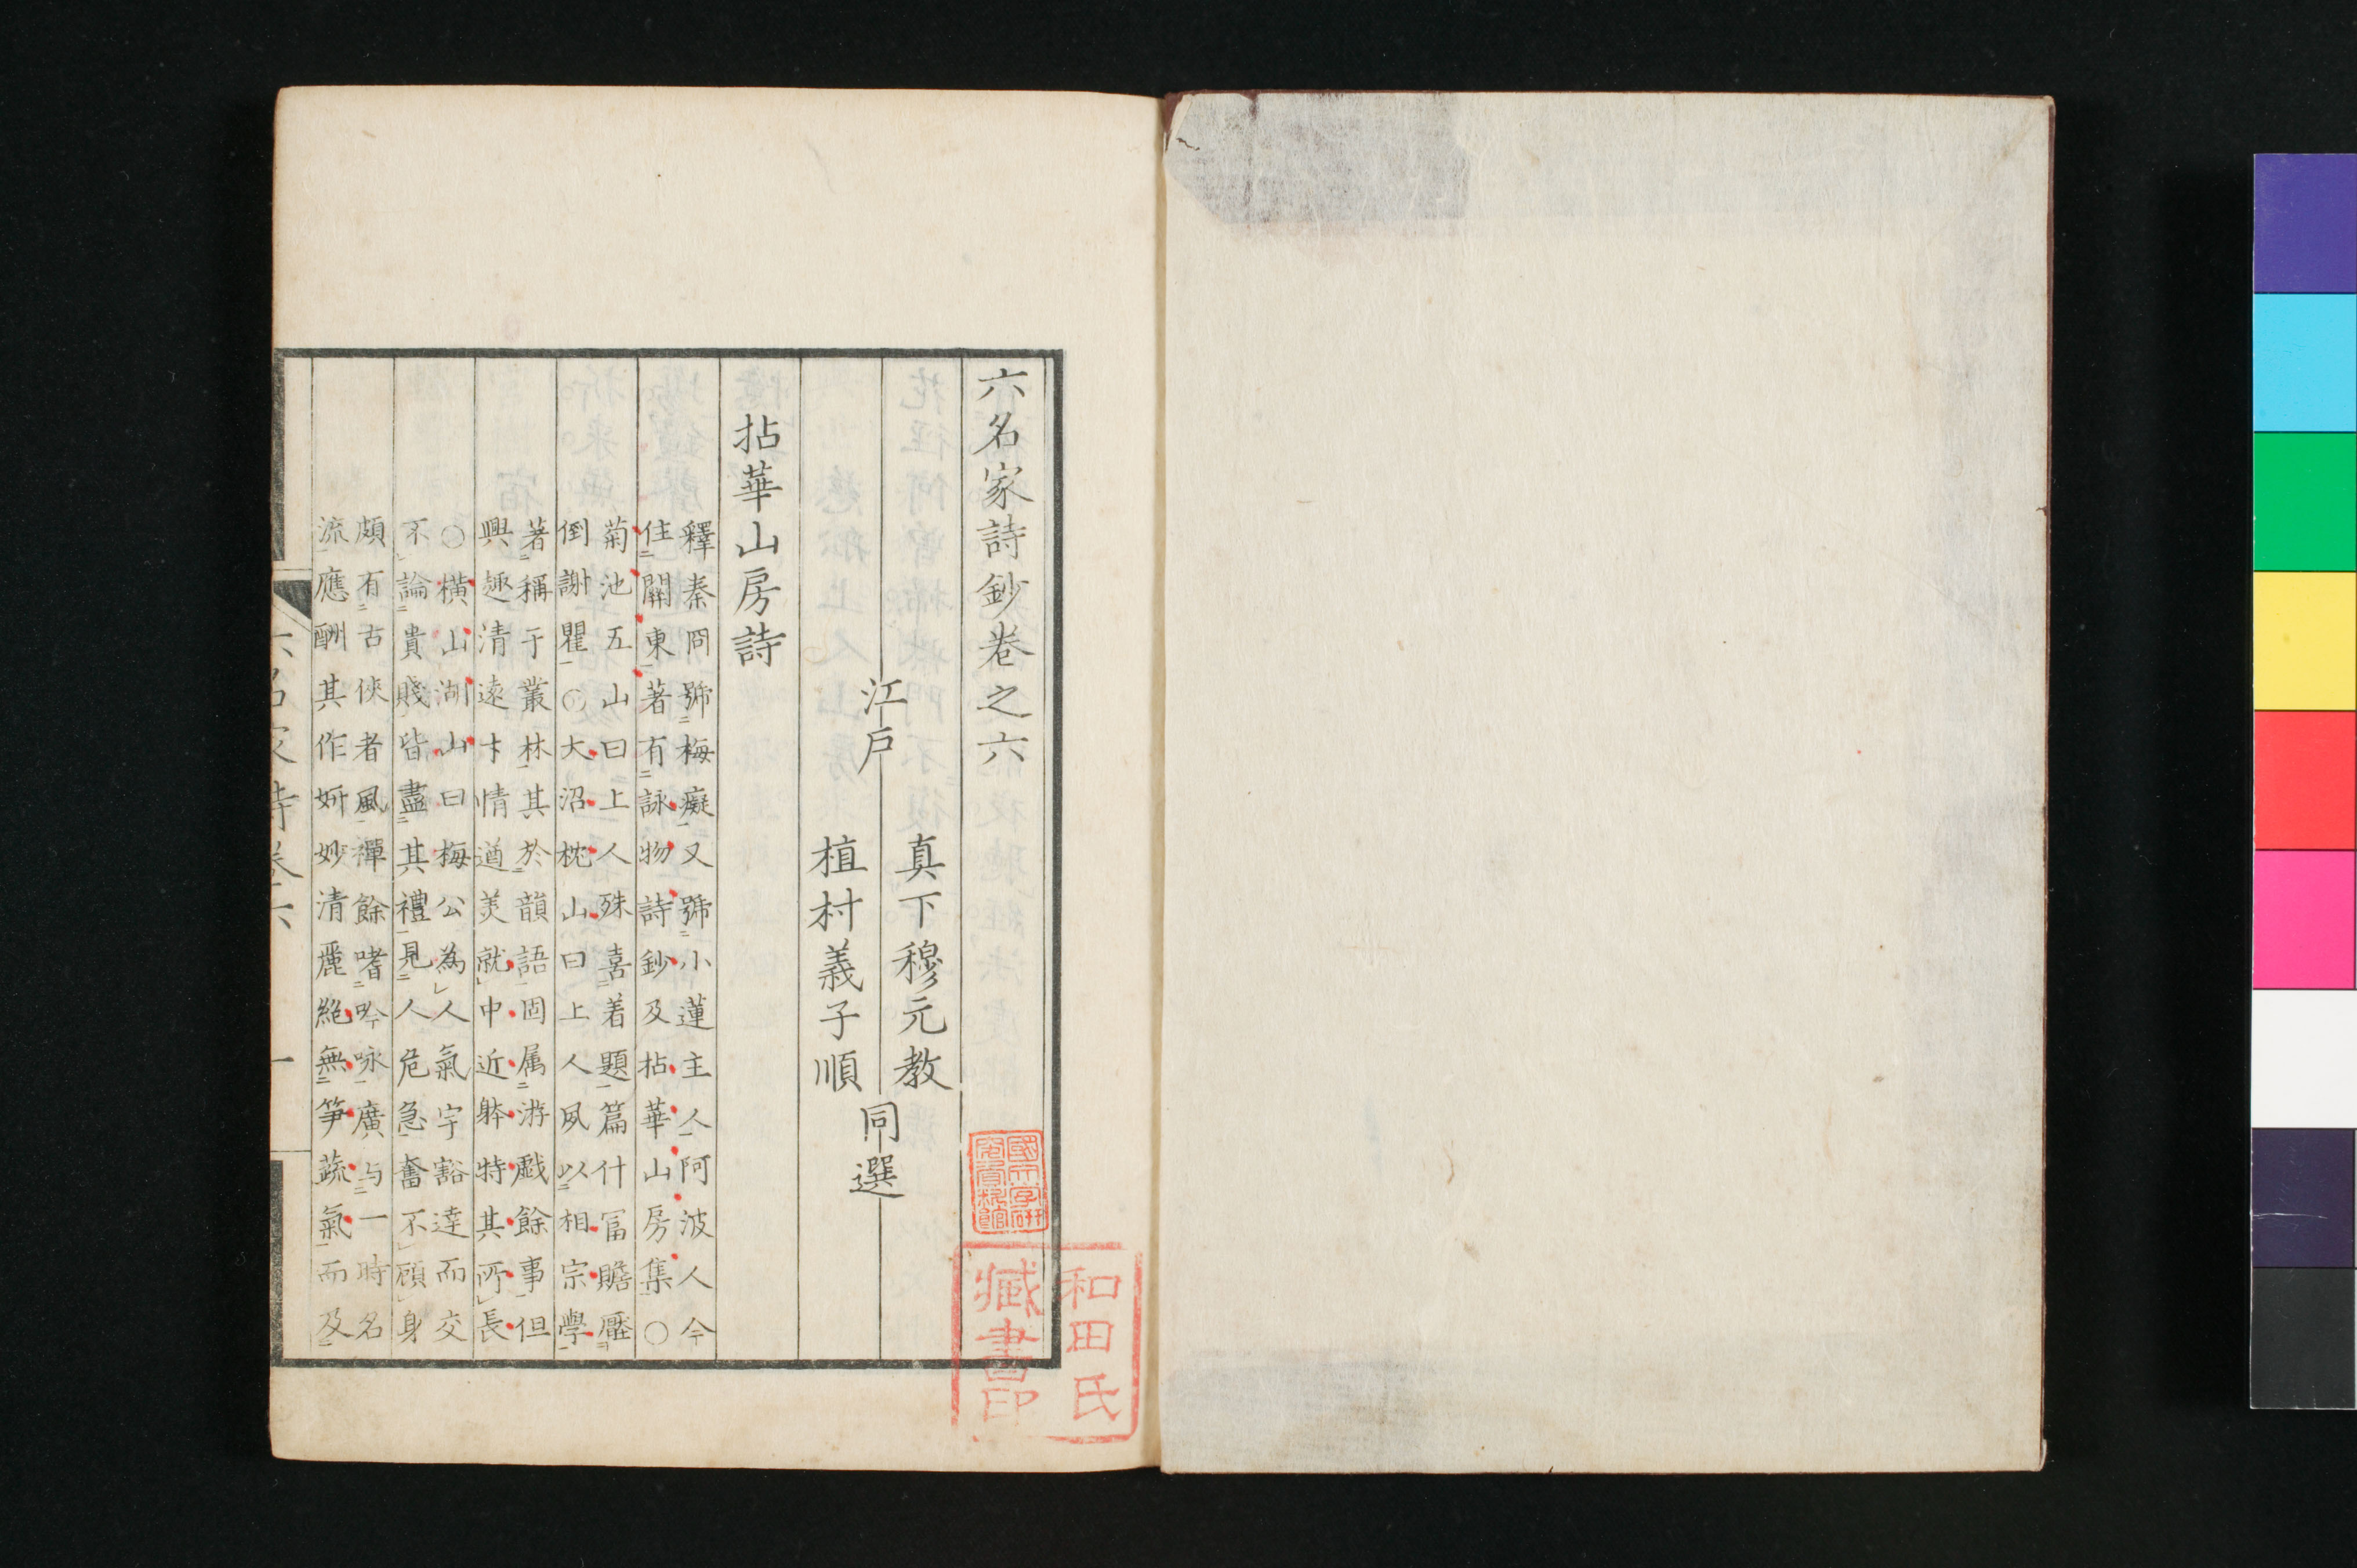 六名家詩鈔巻之六
江戸
真下穆元教
植村義子順
同選
拈華山房詩
釋秦冏號梅癡又號小蓮主人阿波人今
住關東著有詠物詩鈔及拈華山房集○
菊池五山曰上人殊喜着題篇什冨贍壓
倒謝瞿○大沼枕山曰上人夙以相宗學
著稱于叢林其於韻語固属游戯餘事但
興趣清遠才情遒美就中近躰特其所長
○橫山湖山曰梅公為人氣宇豁達而交
不論貴賤皆盡其禮見人危急奮不顧身
頗有古俠者風禪餘嗜吟咏廣与一時名
流應酬其作妍妙清麗絶無笋蔬氣而及
六名家詩 巻六 一
和田氏
藏書印